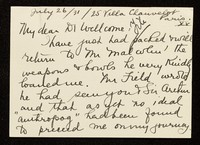 July 26/31/25 Villa Chauvelot
Paris.
My dear Dr Wellcome:
I have just had packed & will
return to Mr Malcolm! the
weapons & bowls he very kindly
loaned me. Mr Field, wrote
he had seen you & Sir Arthur
and that as yet no ideal
"anthropog" had been found
to preceed me on my journey